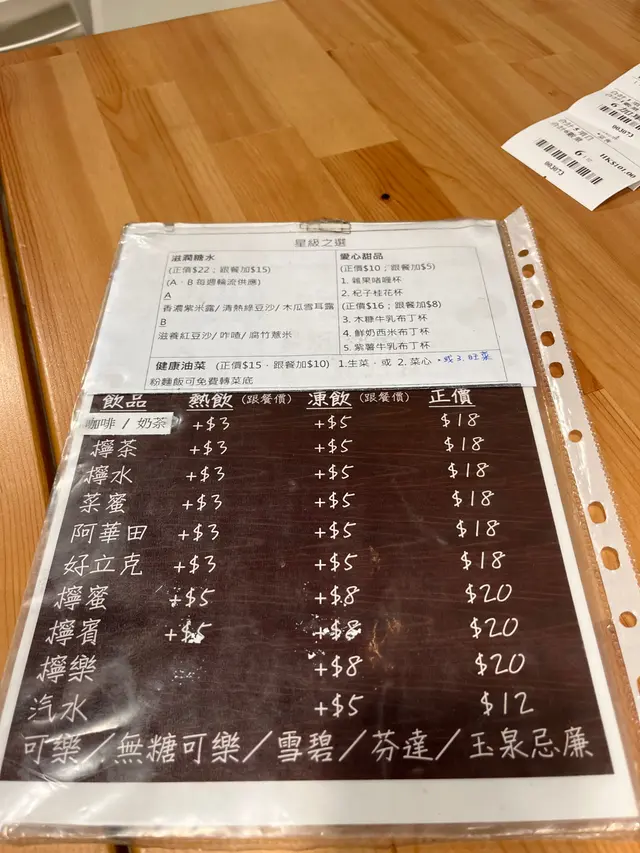 星級之選
滋潤糖水
(正價$22；跟餐加$15)
(A、B 每週輪流供應)
A
香濃紫米露/ 清熱綠豆沙/ 木瓜雪耳露
B
滋養紅豆沙/ 咋喳/ 腐竹薏米
愛心甜品
(正價$10；跟餐加$5)
1. 雜果啫喱杯
2. 杞子桂花杯
(正價$16；跟餐加$8)
3. 木糠牛乳布丁杯
4. 鮮奶西米布丁杯
5. 紫薯牛乳布丁杯
健康油菜 (正價$15．跟餐加$10) 1.生菜．或 2. 菜心．或 3. 旺菜
粉麵飯可免費轉菜底
飲品 熱飲 (跟餐價) 凍飲 (跟餐價) 正價
咖啡 / 奶茶 +$3 +$5 $18
檸茶 +$3 +$5 $18
檸水 +$3 +$5 $18
菜蜜 +$3 +$5 $18
阿華田 +$3 +$5 $18
好立克 +$3 +$5 $18
檸蜜 +$5 +$8 $20
檸賓 +$5 +$8 $20
檸樂 +$8 $20
汽水 +$5 $12
可樂／無糖可樂／雪碧／芬達／玉泉忌廉
HK$101.00